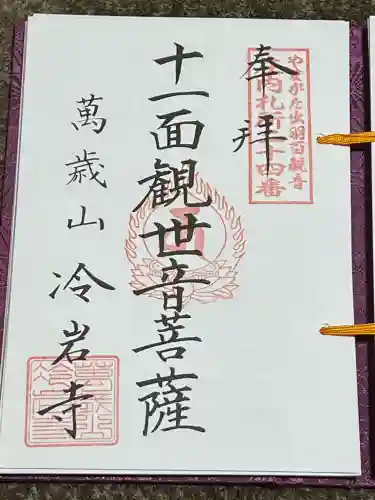 やまがた出羽百観音
内札所十四番
奉拝
十一面観世音菩薩
萬歳山 冷岩寺